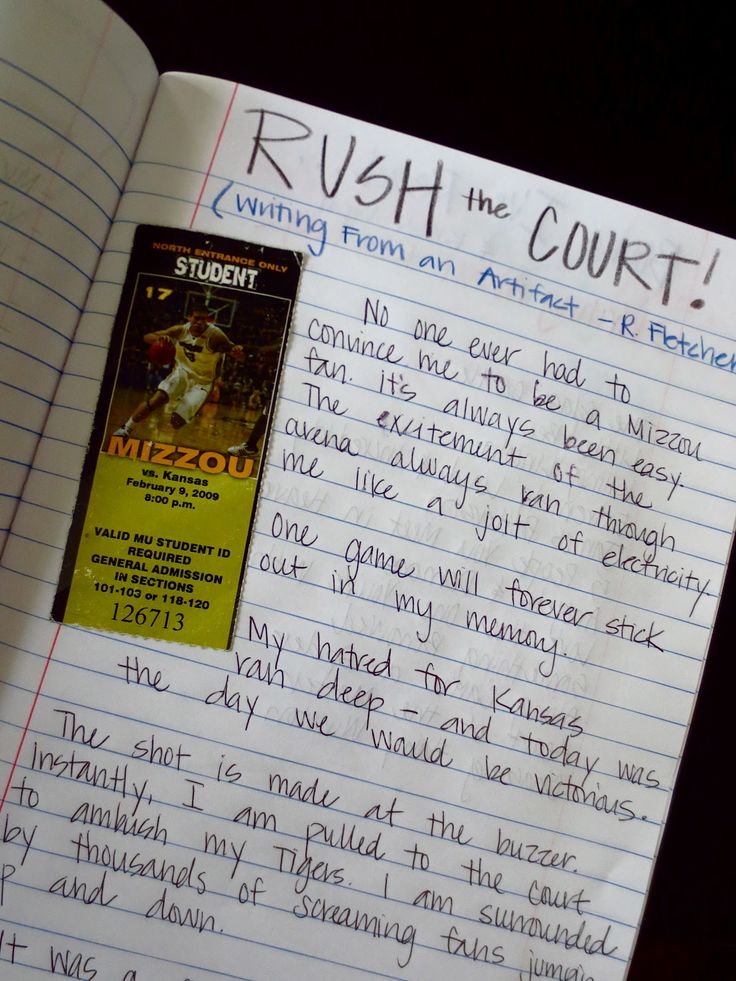 RUSH the COURT!
(Writing From an Artifact - R. Fletcher
NORTH ENTRANCE ONLY
STUDENT
17
MIZZOU
vs. Kansas
February 9, 2009
8:00 p.m.
VALID MU STUDENT ID
REQUIRED
GENERAL ADMISSION
IN SECTIONS
101-103 or 118-120
126713
No one ever had to
convince me to be a Mizzou
fan. it's always been easy.
The excitement of the
arena always ran through
me like a jolt of electricity.
One game will forever stick
out in my memory.
My hatred for Kansas
ran deep - and today was
the day we would be victorious.
The shot is made at the buzzer.
Instantly, I am pulled to the court
to ambush my Tigers. I am surrounded
by thousands of screaming fans
and down.
It was a